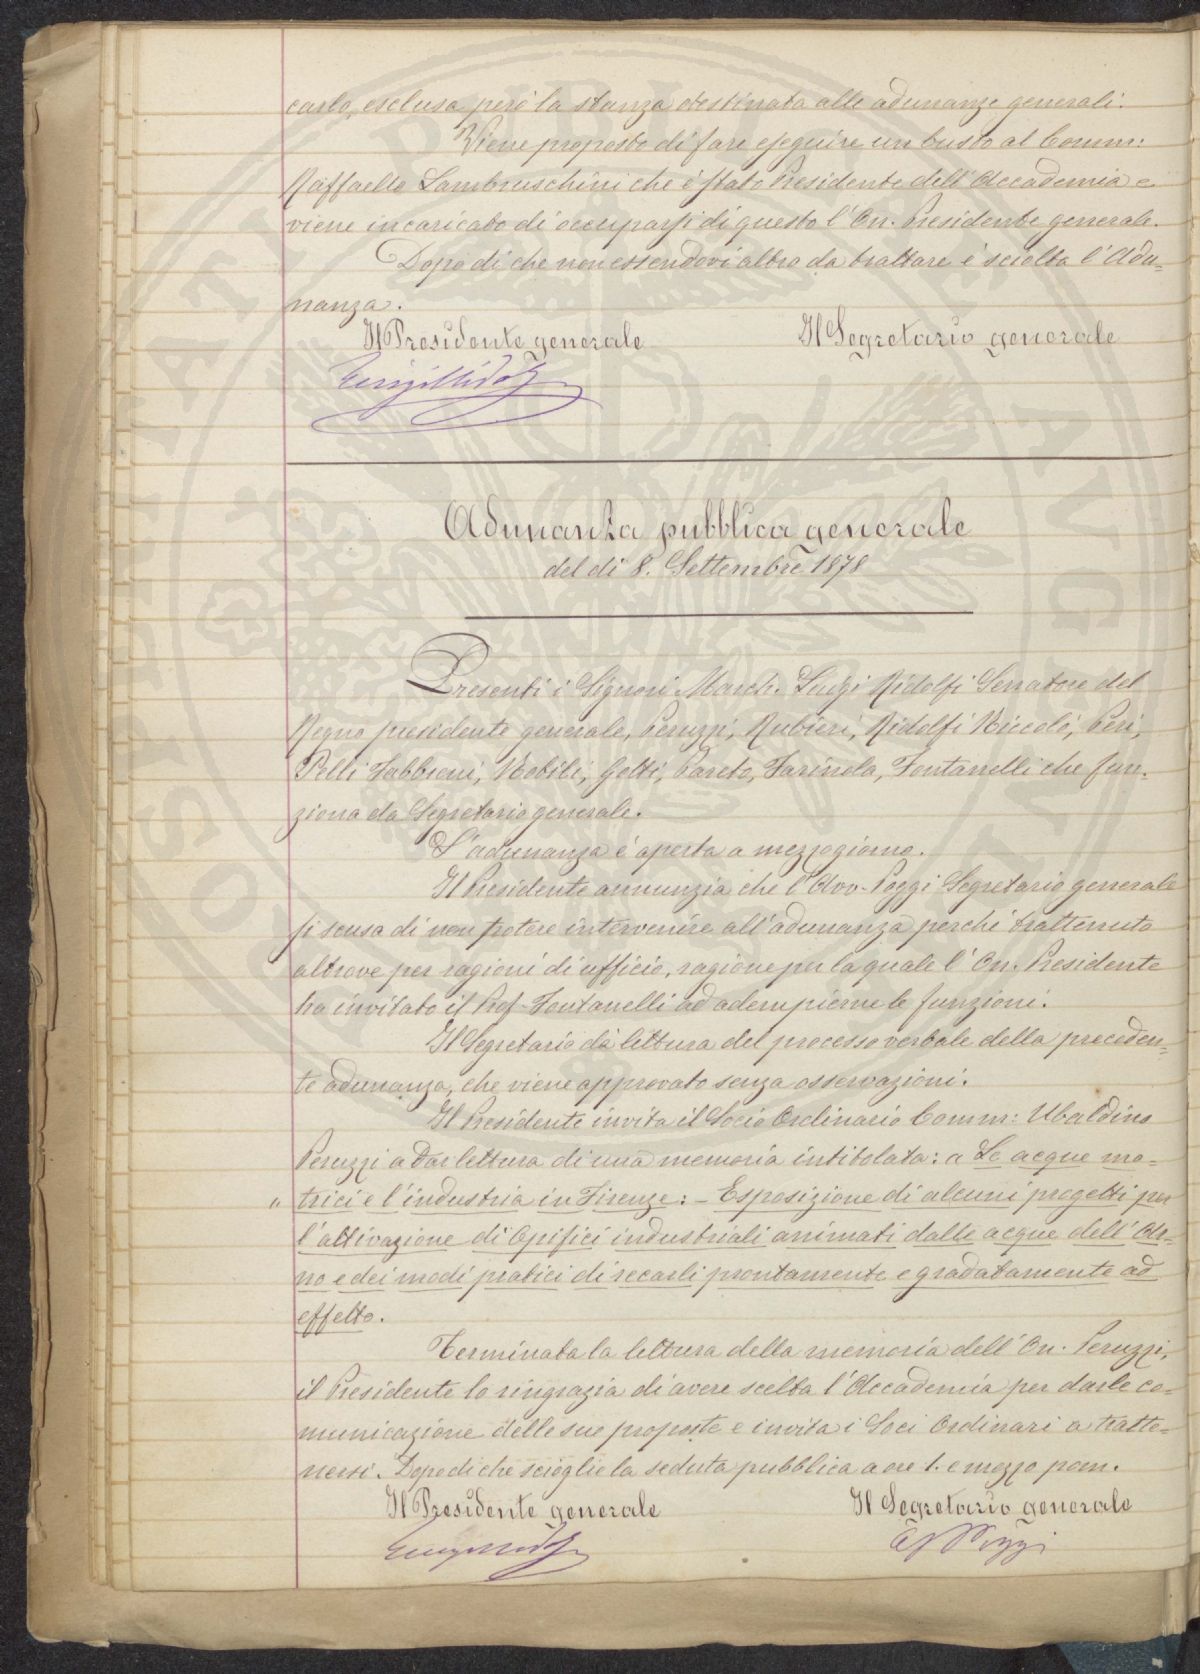 carlo, esclusa però la stanza destinata alle adunanze generali.
Viene proposto di fare eseguire un busto al Comm:
Raffaello Lambruschini che è stato Presidente dell'Accademia e
viene incaricato di occuparsi di questo l'On. Presidente generale.
Dopo di che non essendovi altro da trattare è sciolta l'Adu-
nanza.
Il Presidente generale Il Segretario generale
Luigi Ridolfi
Adunanza pubblica generale
del dì 8. Settembre 1878
Presenti i Signori March. Luigi Ridolfi Senatore del
Regno presidente generale, Peruzzi, Rubieri, Ridolfi Niccolò, Peri,
Pelli Fabbroni, Nobili, Gotti, Pareto, Farinola, Fontanelli che fun-
ziona da Segretario generale.
L'adunanza è aperta a mezzogiorno.
Il Presidente annunzia che l'Avv. Poggi Segretario generale
si scusa di non potere intervenire all'adunanza perchè trattenuto
altrove per ragioni di ufficio, ragione per la quale l'On. Presidente
ha invitato il Prof. Fontanelli ad adempierne le funzioni.
Il Segretario dà lettura del processo verbale della preceden-
te adunanza, che viene approvato senza osservazioni.
Il Presidente invita il Socio Ordinario Comm: Ubaldino
Peruzzi a dar lettura di una memoria intitolata: « Le acque mo-
" trici e l'industria in Firenze: - Esposizione di alcuni progetti per
l'attivazione di Opifici industriali animati dalle acque dell'Ar-
no e dei modi pratici di recarli prontamente e gradatamente ad
effetto.
Terminata la lettura della memoria dell'On. Peruzzi,
il Presidente lo ringrazia di avere scelta l'Accademia per darle co-
municazione delle sue proposte e invita i Soci Ordinari a tratte-
nersi. Dopo di che scioglie la seduta pubblica a ore 1. e mezzo pom.
Il Presidente generale Il Segretario generale
Luigi Ridolfi E Poggi